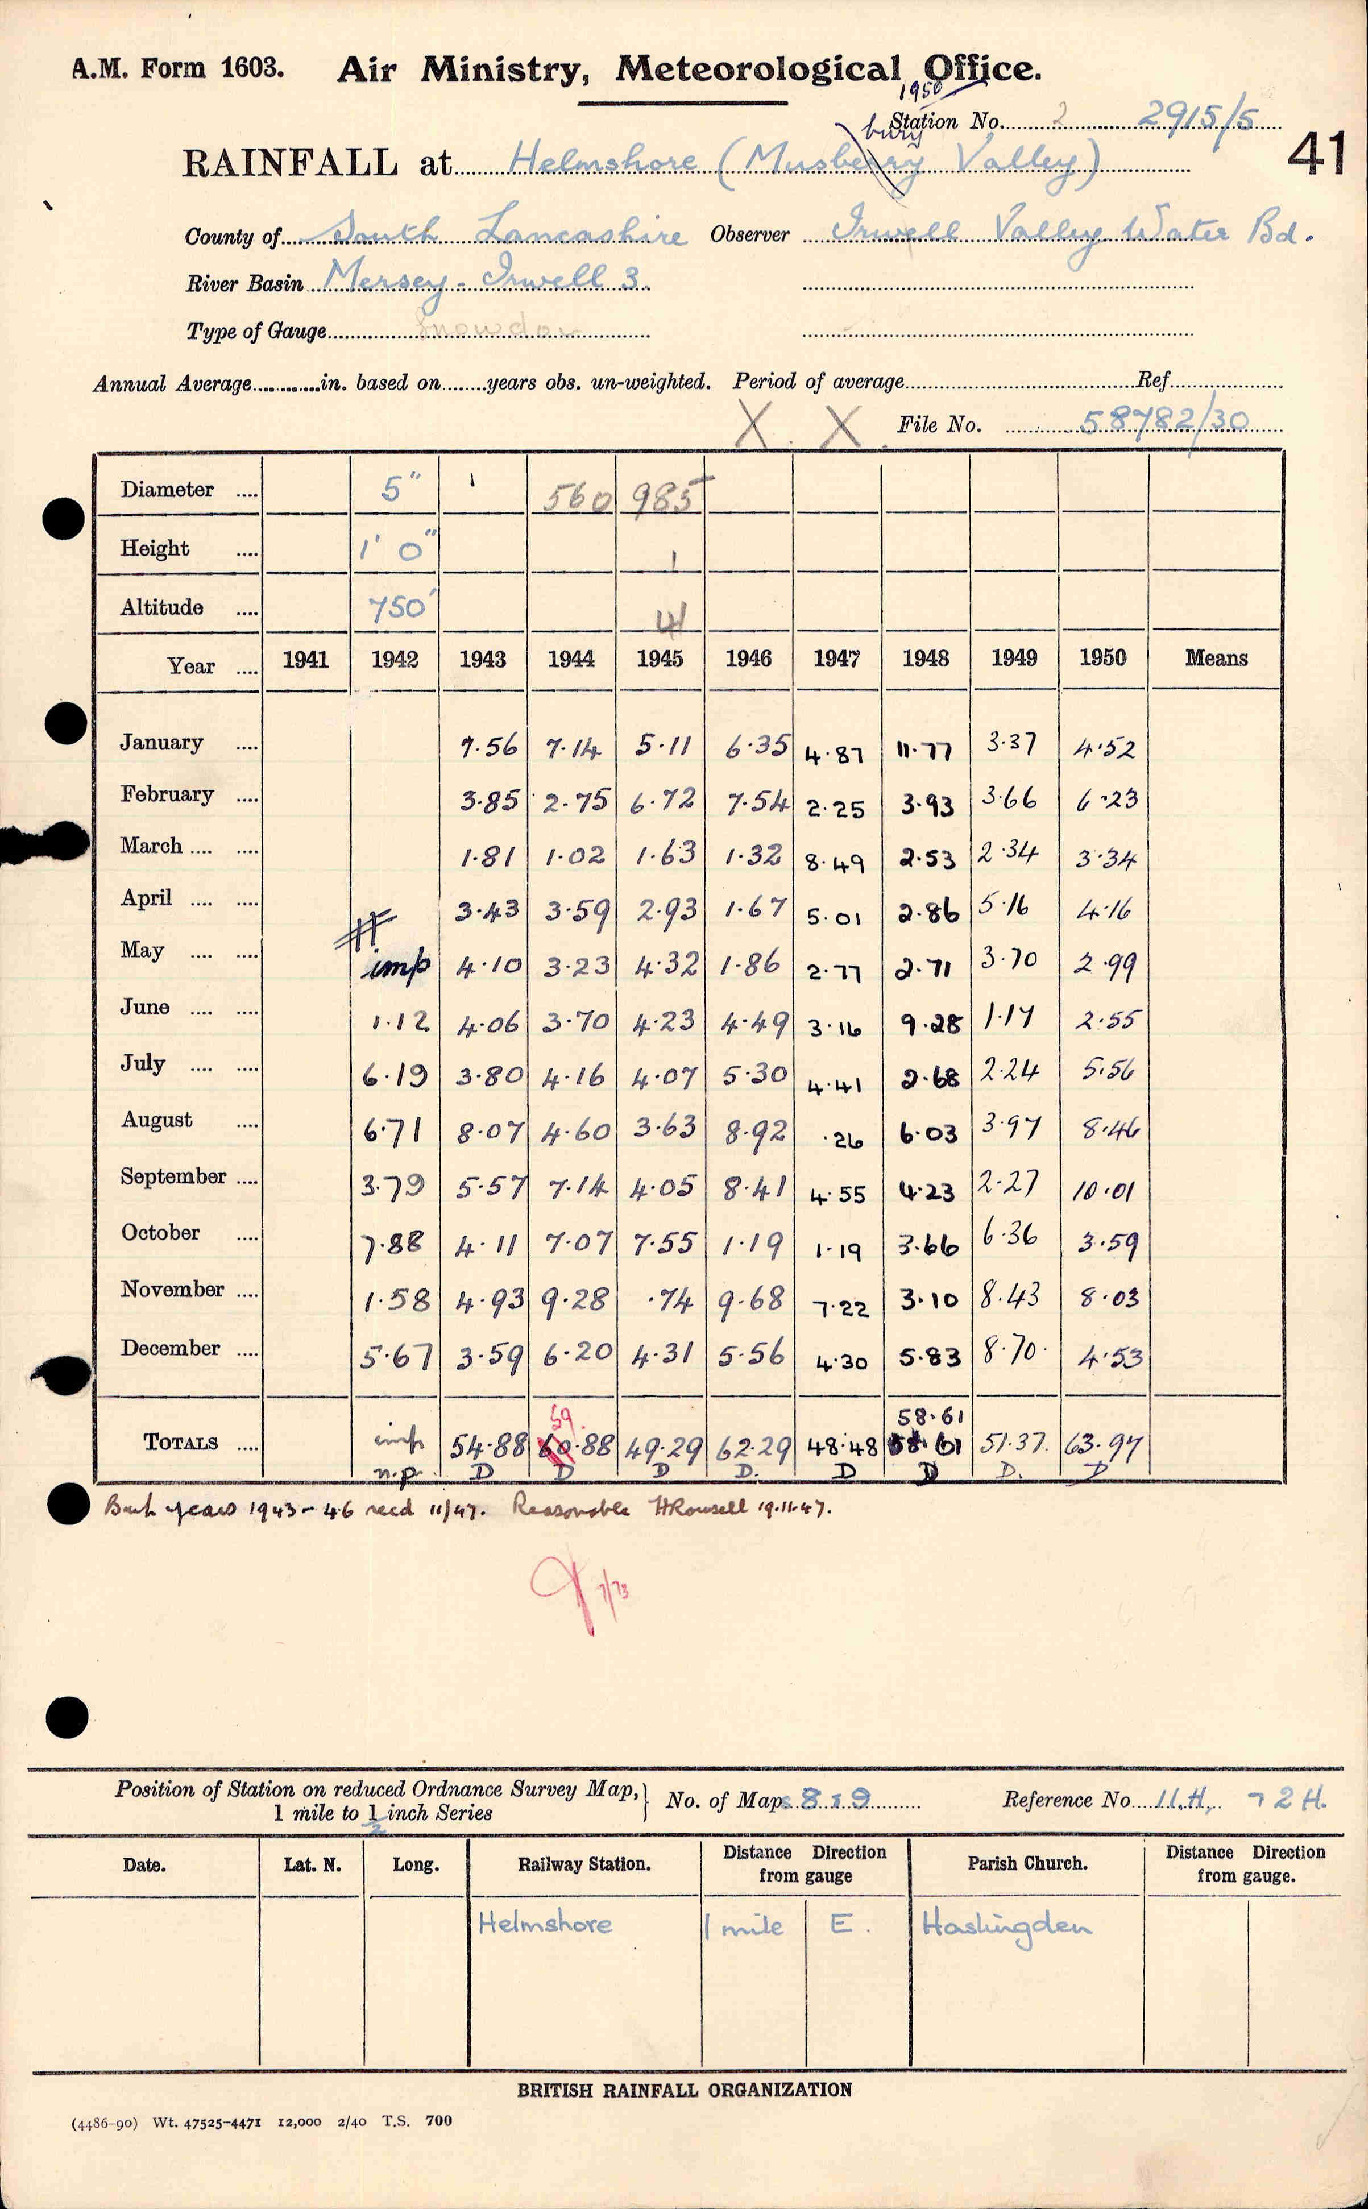 A.M. Form 1603. Air Ministry, Meteorological Office.
1950
Station No. 2 2915/5
41
bury
RAINFALL at Helmshore (Musberry Valley)
County of South Lancashire Observer Irwell Valley Water Bd.
River Basin Mersey - Irwell 3.
Type of Gauge Snowdon
Annual Average in. based on years obs. un-weighted. Period of average Ref
X. X. File No. 58782/30
Diameter .... 5" 560 985
Height .... 1' 0" 1
Altitude .... 750' 41
Year .... 1941 1942 1943 1944 1945 1946 1947 1948 1949 1950 Means
January .... 7.56 7.14 5.11 6.35 4.87 11.77 3.37 4.52
February .... 3.85 2.75 6.72 7.54 2.25 3.93 3.66 6.23
March .... .... 1.81 1.02 1.63 1.32 8.49 2.53 2.34 3.34
April .... .... 3.43 3.59 2.93 1.67 5.01 2.86 5.16 4.16
May .... .... imp 4.10 3.23 4.32 1.86 2.77 2.71 3.70 2.99
June .... .... 1.12 4.06 3.70 4.23 4.49 3.16 9.28 1.17 2.55
July .... .... 6.19 3.80 4.16 4.07 5.30 4.41 2.68 2.24 5.56
August .... 6.71 8.07 4.60 3.63 8.92 .26 6.03 3.97 8.46
September .... 3.79 5.57 7.14 4.05 8.41 4.55 4.23 2.27 10.01
October .... 7.88 4.11 7.07 7.55 1.19 1.19 3.66 6.36 3.59
November .... 1.58 4.93 9.28 .74 9.68 7.22 3.10 8.43 8.03
December .... 5.67 3.59 6.20 4.31 5.56 4.30 5.83 8.70 4.53
59. 58.61
TOTALS .... imp 54.88 60.88 49.29 62.29 48.48 58.61 51.37. 63.97
n.p. D D D D. D D D. D
Back years 1943-46 recd 11/47. Reasonable HRowsell 19.11.47.
7/73
Position of Station on reduced Ordnance Survey Map, No. of Map 8 & 9 Reference No. 11.H. 72H.
1 mile to 1/2 inch Series
Date. Lat. N. Long. Railway Station. Distance Direction from gauge Parish Church. Distance Direction from gauge.
Helmshore 1 mile E. Haslingden
BRITISH RAINFALL ORGANIZATION
(4486-90) Wt. 47525-4471 12,000 2/40 T.S. 700